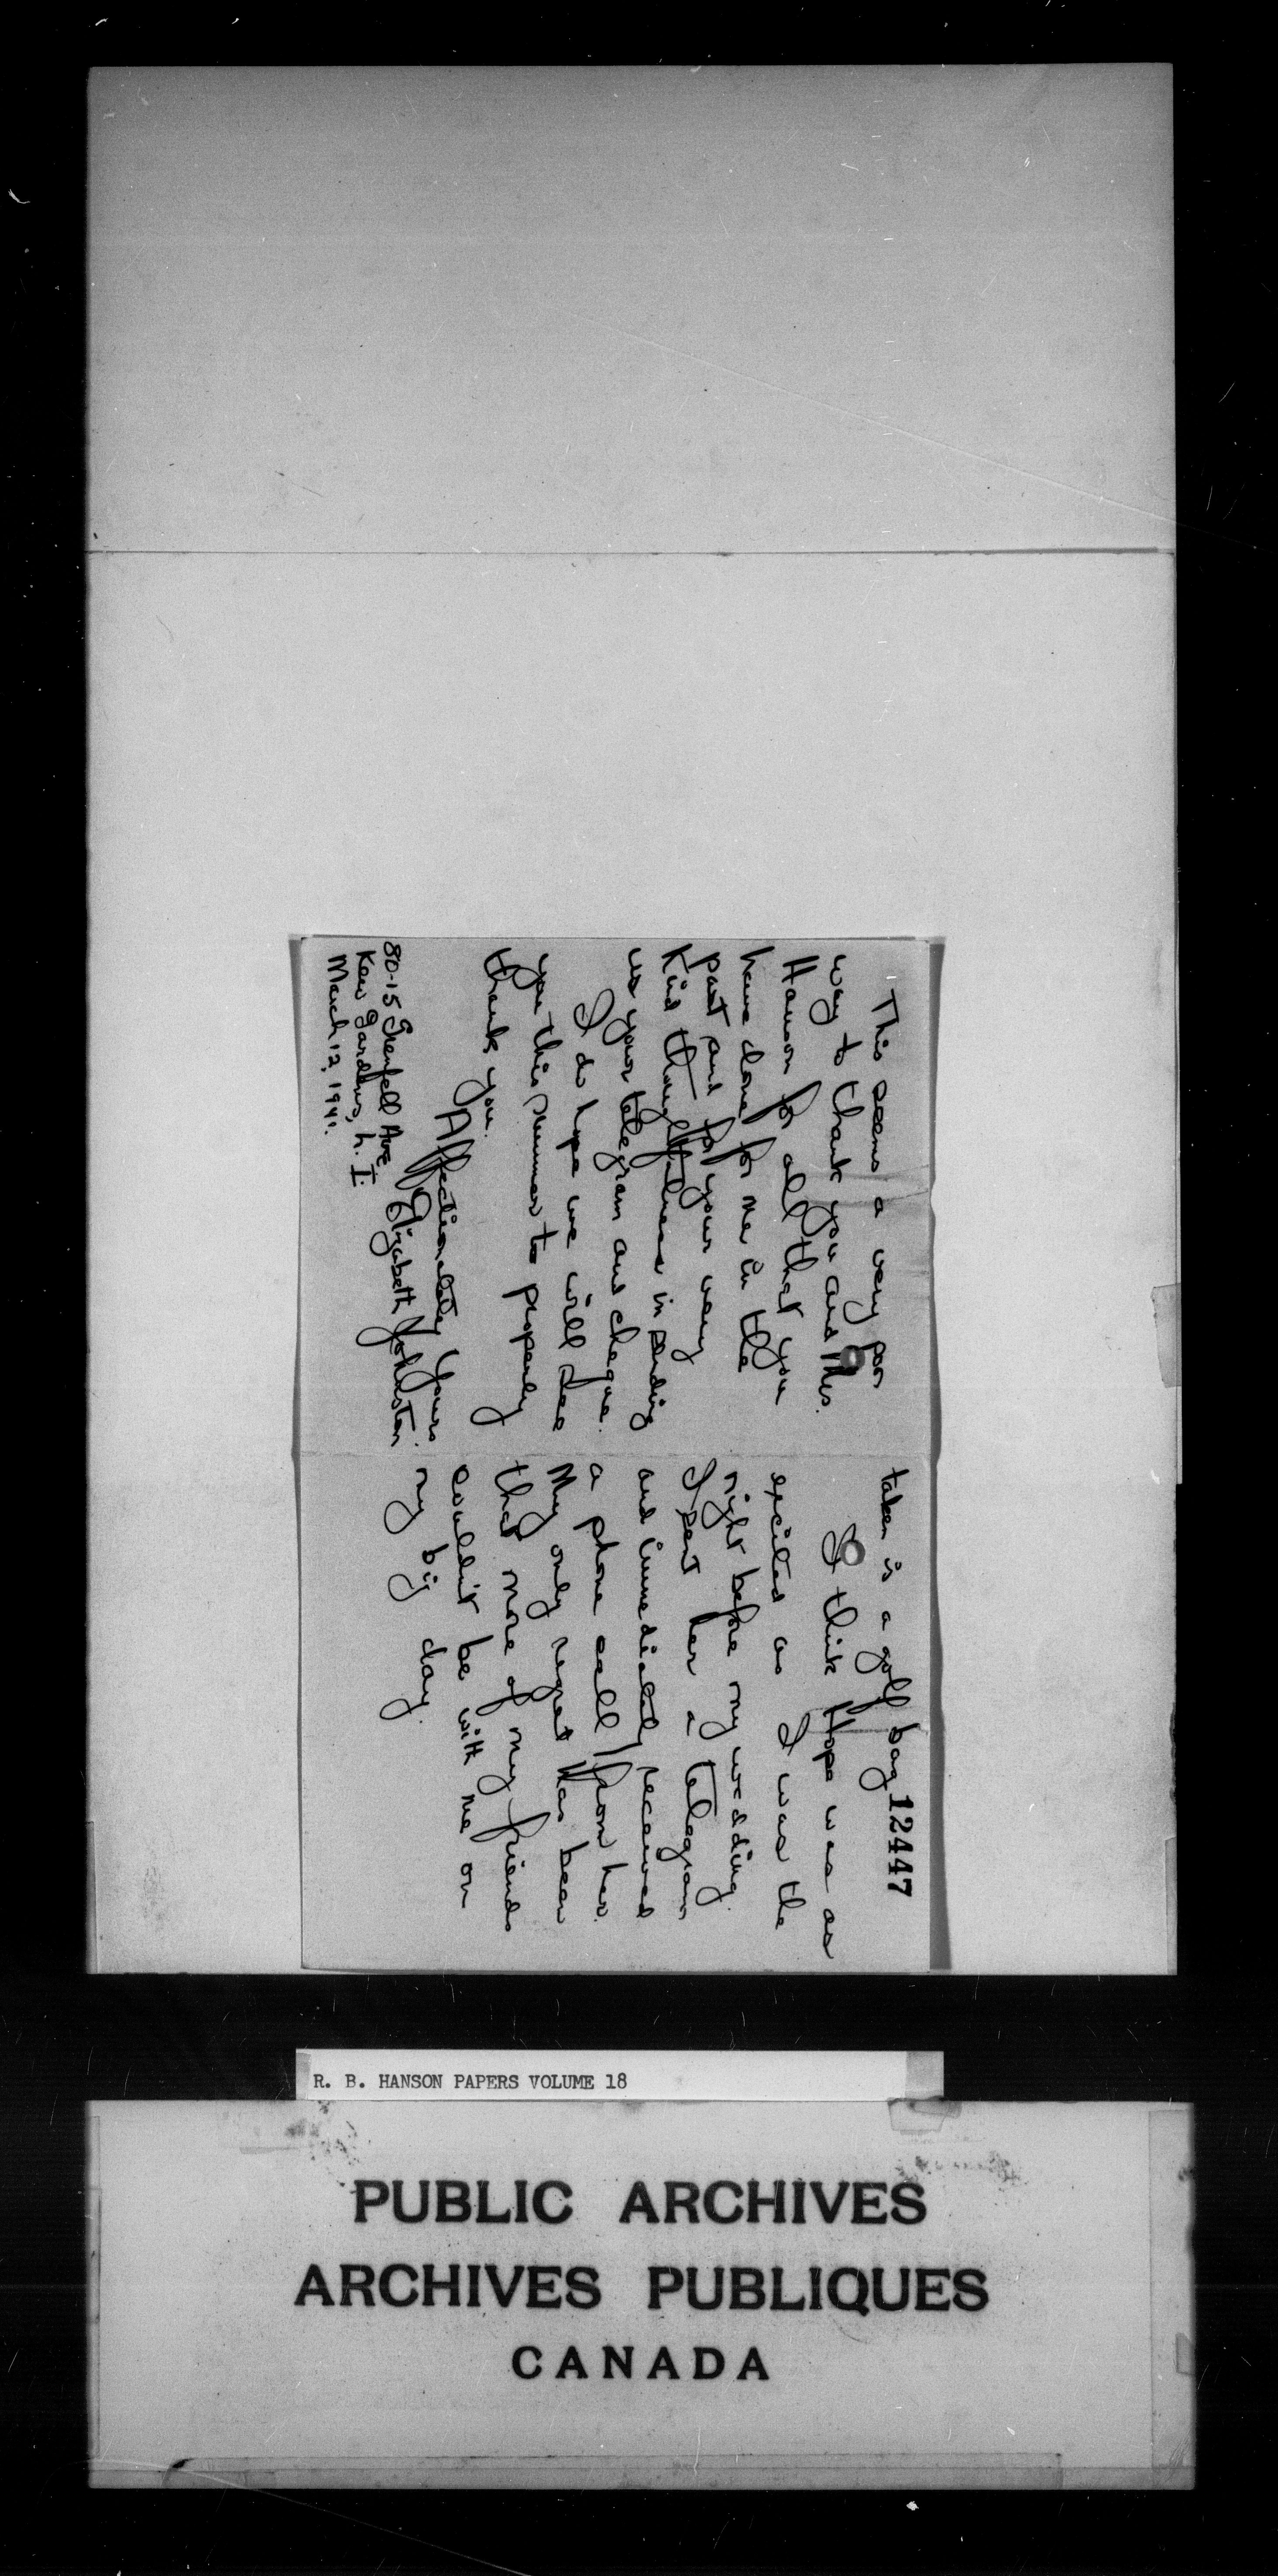 12447
taken is a golf bag
I think Hope was as
excited as I was the
night before my wedding.
I sent her a telegram
and immediately received
a phone call from her.
My only regret has been
that more of my friends
couldn't be with me on
my big day.
This seems a very poor
way to thank you and Mrs.
Hanson for all that you
have done for me in the
past and for your very
kind thoughtfulness in sending
us your telegram and cheque.
I do hope we will see
you this summer to properly
thank you.
Affectionately yours
Elizabeth Johnston.
80-15 Grenfell Ave
Kew Gardens, L. I.
March 12, 1941.
R. B. HANSON PAPERS VOLUME 18
PUBLIC ARCHIVES
ARCHIVES PUBLIQUES
CANADA